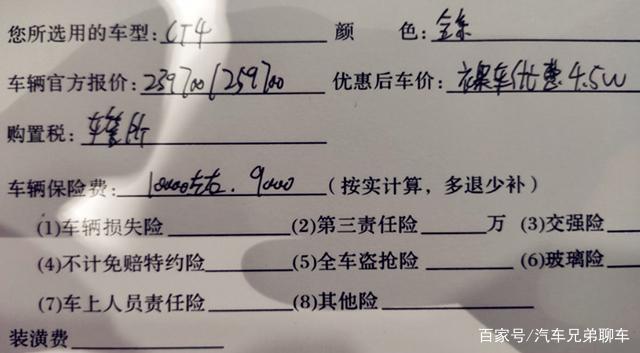 您所选用的车型: CT4 颜 色: 全系
车辆官方报价: 239700/259700 优惠后车价: 裸车优惠4.5W
购置税: 车管所
车辆保险费: 10000左右. 9000 (按实计算，多退少补)
(1)车辆损失险 (2)第三责任险 万 (3)交强险
(4)不计免赔特约险 (5)全车盗抢险 (6)玻璃险
(7)车上人员责任险 (8)其他险
装潢费
百家号/汽车兄弟聊车